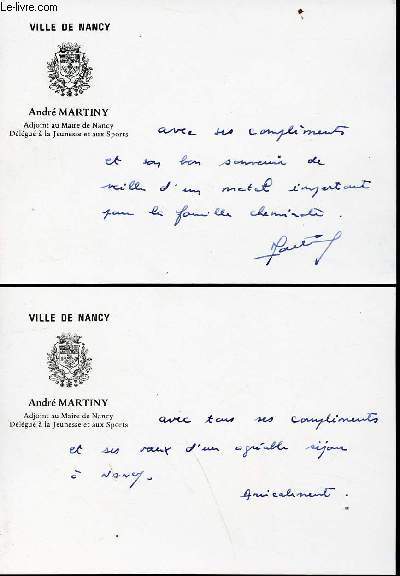 Le-livre.com
VILLE DE NANCY
André MARTINY
Adjoint au Maire de Nancy
Délégué à la Jeunesse et aux Sports
avec ses compliments
et son bon souvenir de
veille d'un match important
pour la famille cheminote.
VILLE DE NANCY
André MARTINY
Adjoint au Maire de Nancy
Délégué à la Jeunesse et aux Sports
avec tous ses compliments
et ses vœux d'un agréable séjour
à Nancy.
Amicalement.